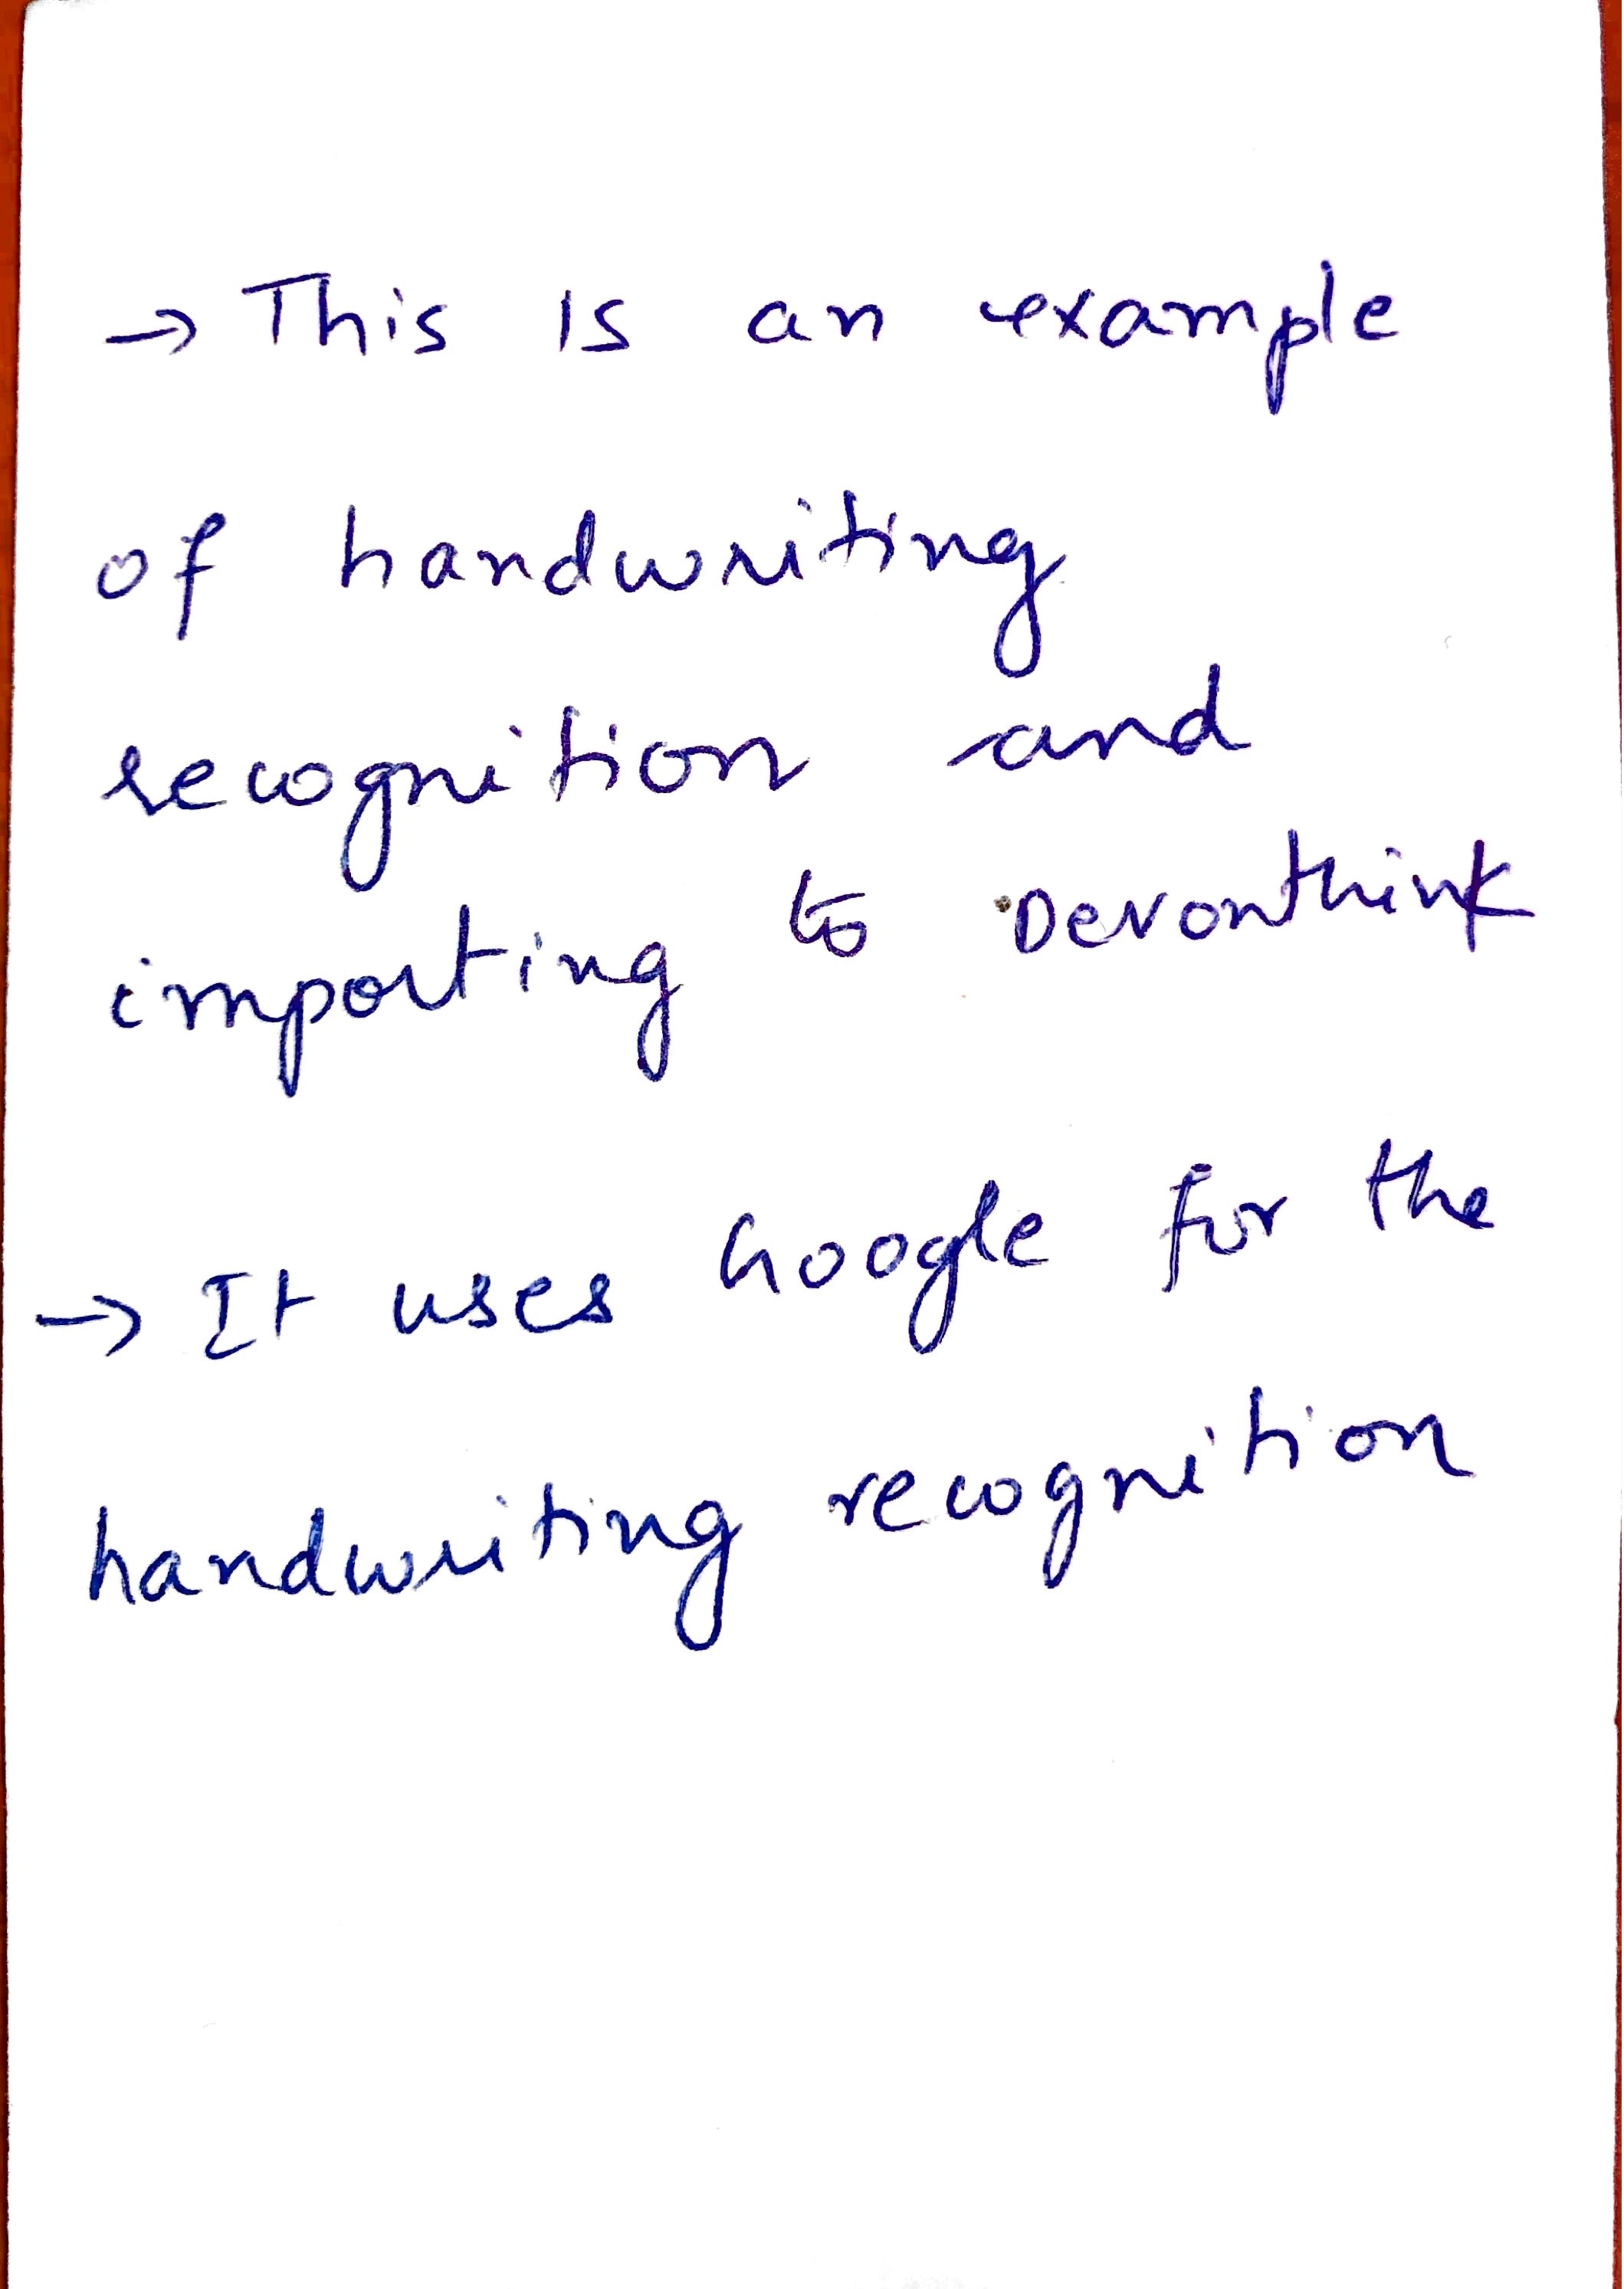 → This is an example
of handwriting
recognition and
importing to Devonthink
→ It uses Google for the
handwriting recognition